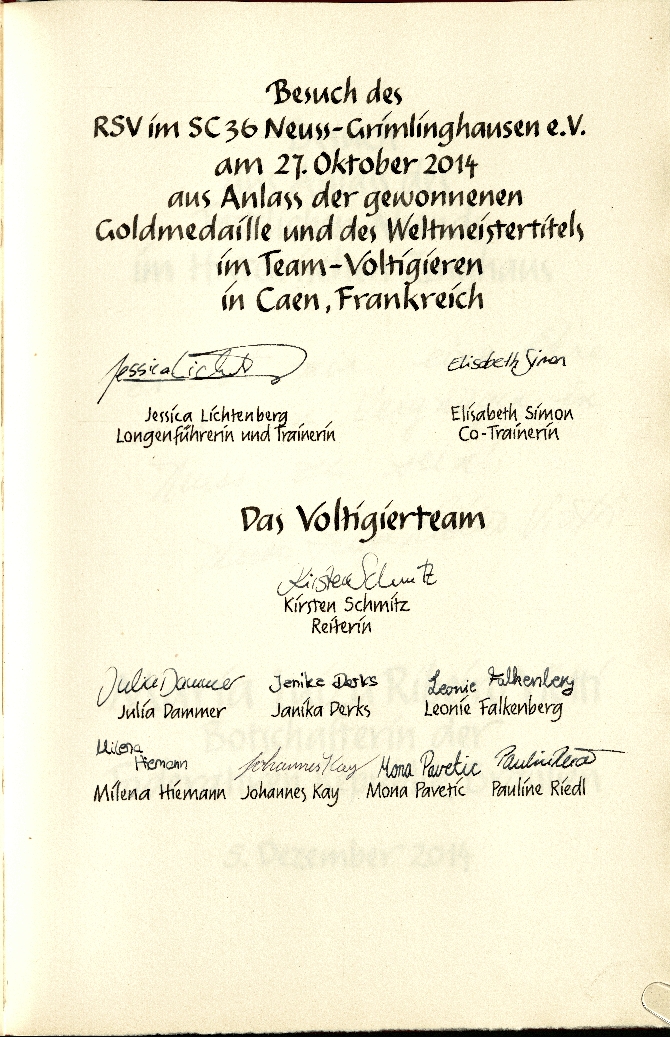 Besuch des
RSV im SC 36 Neuss-Grimlinghausen e.V.
am 27. Oktober 2014
aus Anlass der gewonnenen
Goldmedaille und des Weltmeistertitels
im Team-Voltigieren
in Caen, Frankreich
Jessica Lichtenberg Elisabeth Simon
Longenführerin und Trainerin Co-Trainerin
Das Voltigierteam
Kirsten Schmitz
Kirsten Schmitz
Reiterin
Julia Dammer Janika Derks Leonie Falkenberg
Julia Dammer Janika Derks Leonie Falkenberg
Milena
Hiemann Johannes Kay Mona Pavetic
Milena Hiemann Johannes Kay Mona Pavetic Pauline Riedl
5. Dezember 2014